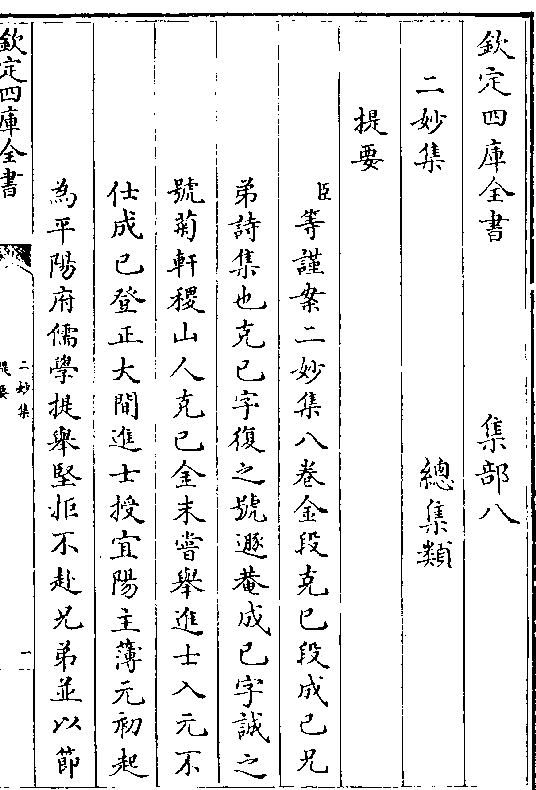 欽定四庫全書 集部八
二妙集 總集類
提要
臣等謹案二妙集八卷金段克已段成已兄
弟詩集也克已字復之號遯菴成已字誠之
號菊軒稷山人克已金末嘗舉進士入元不
仕成已登正大間進士授宜陽主簿元初起
為平陽府儒學提舉堅拒不赴兄弟並以節
欽定四庫全書
二妙集
提要
一